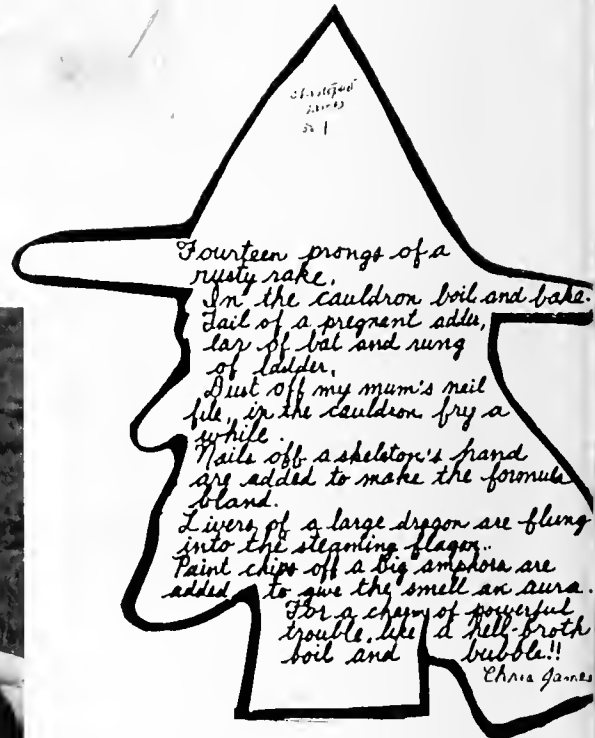 Fourteen prongs of a
rusty rake,
In the cauldron boil and bake.
Tail of a pregnant adder,
ear of bat and rung
of ladder,
Dust off my mum's nail
file, in the cauldron fry a
while.
Nails off a skeleton's hand
are added to make the formula
bland.
Livers of a large dragon are flung
into the steaming flagon..
Paint chips off a big amphora are
added to give the smell an aura.
For a charm of powerful
trouble, like a hell-broth
boil and bubble!!
Chris James